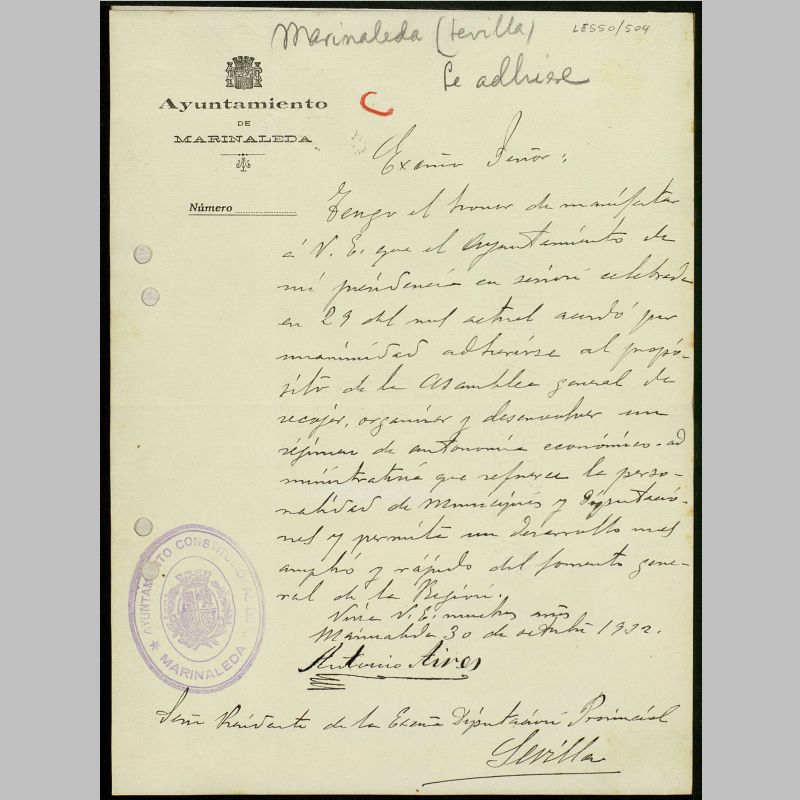 Marinaleda (Sevilla)
LE550/504
Se adhiere
Ayuntamiento
DE
MARINALEDA
Excmo Señor:
Número
Tengo el honor de manifestar
á V. E. que el Ayuntamiento de
mi presidencia en sesión celebrada
en 29 del mes actual acordó por
unanimidad adherirse al propó-
sito de la Asamblea general de
recojer, organizar y desenvolver un
régimen de autonomía económico-ad
ministrativa que refuerce la perso-
nalidad de Municipios y Diputacio-
nes y permita un desarrollo mas
amplio y rápido del fomento gene-
ral de la Región.
Viva V. E. muchos años
Marinaleda 30 de octubre 1932.
Antonio Aires
AYUNTAMIENTO CONSTITUCIONAL DE
* MARINALEDA *
Señor Presidente de la Excma Diputación Provincial
Sevilla